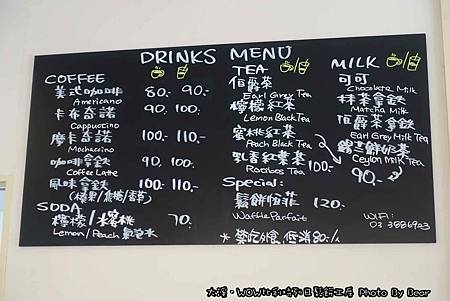 DRINKS MENU
COFFEE
美式咖啡 80.- 90.-
Americano
卡布奇諾 90.- 100.-
Cappuccino
摩卡奇諾 100.- 110.-
Mochaccino
咖啡拿鐵 90.- 100.-
Coffee Latte
風味拿鐵 100.- 110.-
(榛果/焦糖/香草)
SODA
檸檬/蜜桃 70.-
Lemon / Peach 氣泡水
TEA
伯爵茶
Earl Grey Tea
檸檬紅茶
Lemon Black Tea
蜜桃紅茶
Peach Black Tea
Rooibos Tea 100.-
Special:
鬆餅伯菲 120.-
Waffle Parfait
MILK
可可
Chocolate Milk
抹茶拿鐵
Matcha Milk
伯爵茶拿鐵
Earl Grey Milk Tea
錫蘭鮮奶茶
Ceylon Milk Tea
90.-
WIFI:
03 3886923
低消80.-/人
大溪・WOW比利時列日鬆餅工房 Photo By Dear